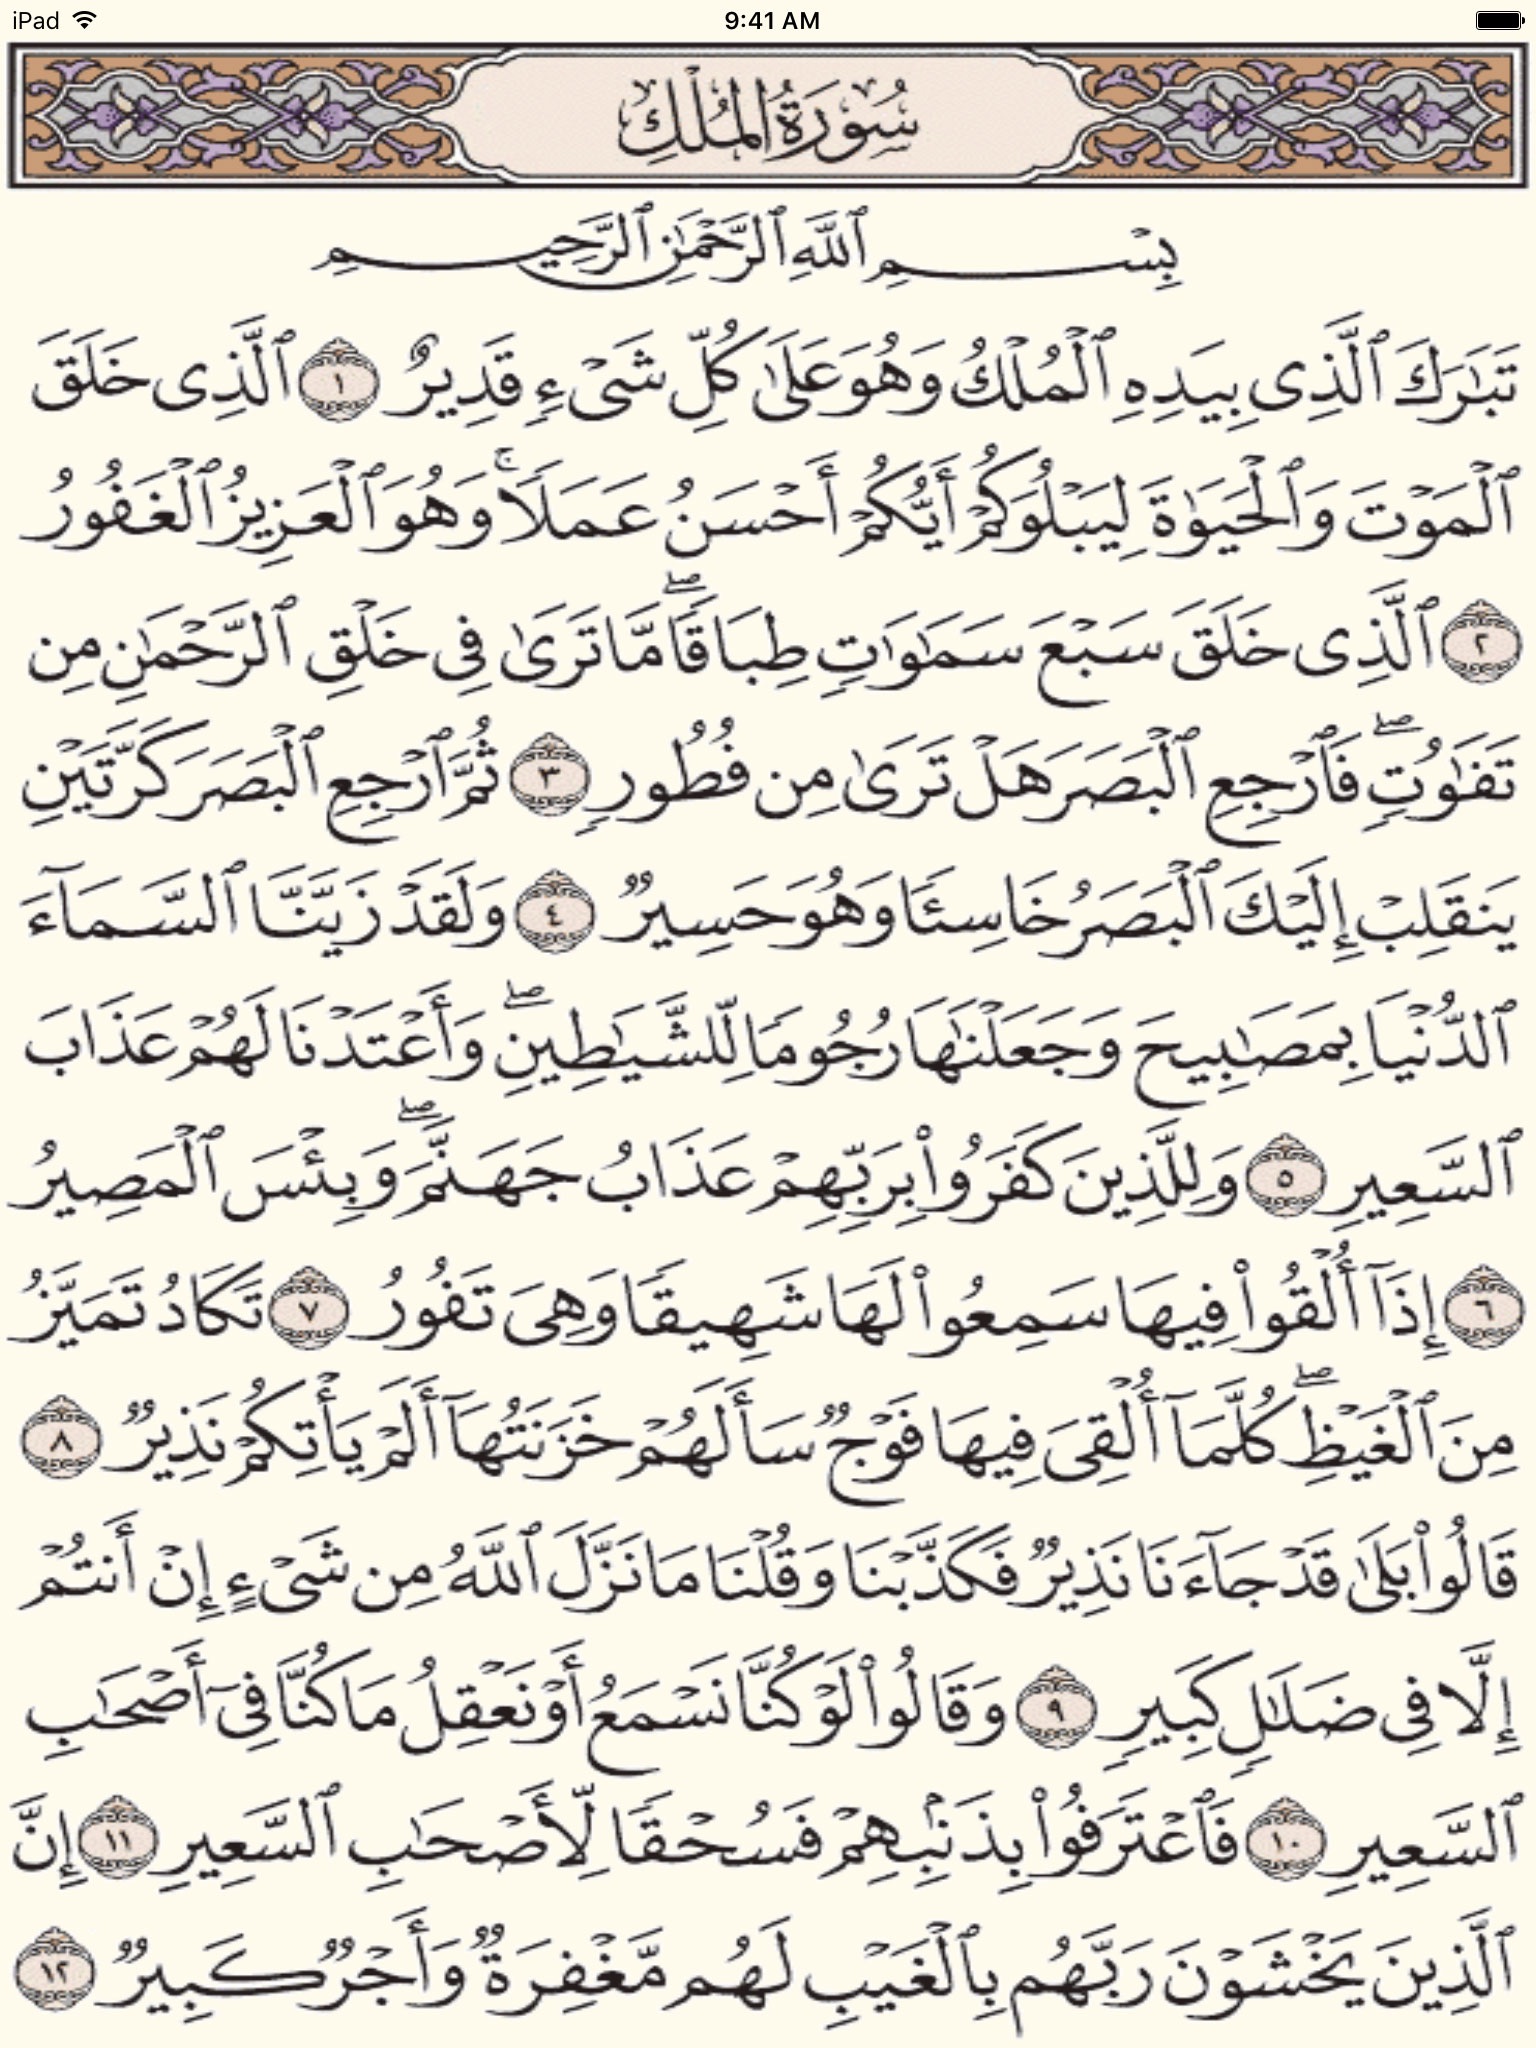 iPad 9:41 AM
سُورَةُ المُلْكِ
بِسْمِ ٱللَّهِ ٱلرَّحْمَٰنِ ٱلرَّحِيمِ
تَبَٰرَكَ ٱلَّذِى بِيَدِهِ ٱلْمُلْكُ وَهُوَ عَلَىٰ كُلِّ شَىْءٍ قَدِيرٌ ١ ٱلَّذِى خَلَقَ
ٱلْمَوْتَ وَٱلْحَيَوٰةَ لِيَبْلُوَكُمْ أَيُّكُمْ أَحْسَنُ عَمَلًا ۚ وَهُوَ ٱلْعَزِيزُ ٱلْغَفُورُ
٢ ٱلَّذِى خَلَقَ سَبْعَ سَمَٰوَٰتٍ طِبَاقًا ۖ مَّا تَرَىٰ فِى خَلْقِ ٱلرَّحْمَٰنِ مِن
تَفَٰوُتٍ ۖ فَٱرْجِعِ ٱلْبَصَرَ هَلْ تَرَىٰ مِن فُطُورٍ ٣ ثُمَّ ٱرْجِعِ ٱلْبَصَرَ كَرَّتَيْنِ
يَنقَلِبْ إِلَيْكَ ٱلْبَصَرُ خَاسِئًا وَهُوَ حَسِيرٌ ٤ وَلَقَدْ زَيَّنَّا ٱلسَّمَآءَ
ٱلدُّنْيَا بِمَصَٰبِيحَ وَجَعَلْنَٰهَا رُجُومًا لِّلشَّيَٰطِينِ ۖ وَأَعْتَدْنَا لَهُمْ عَذَابَ
ٱلسَّعِيرِ ٥ وَلِلَّذِينَ كَفَرُوا۟ بِرَبِّهِمْ عَذَابُ جَهَنَّمَ ۖ وَبِئْسَ ٱلْمَصِيرُ
٦ إِذَآ أُلْقُوا۟ فِيهَا سَمِعُوا۟ لَهَا شَهِيقًا وَهِىَ تَفُورُ ٧ تَكَادُ تَمَيَّزُ
مِنَ ٱلْغَيْظِ ۖ كُلَّمَآ أُلْقِىَ فِيهَا فَوْجٌ سَأَلَهُمْ خَزَنَتُهَآ أَلَمْ يَأْتِكُمْ نَذِيرٌ ٨
قَالُوا۟ بَلَىٰ قَدْ جَآءَنَا نَذِيرٌ فَكَذَّبْنَا وَقُلْنَا مَا نَزَّلَ ٱللَّهُ مِن شَىْءٍ إِنْ أَنتُمْ
إِلَّا فِى ضَلَٰلٍ كَبِيرٍ ٩ وَقَالُوا۟ لَوْ كُنَّا نَسْمَعُ أَوْ نَعْقِلُ مَا كُنَّا فِىٓ أَصْحَٰبِ
ٱلسَّعِيرِ ١٠ فَٱعْتَرَفُوا۟ بِذَنۢبِهِمْ فَسُحْقًا لِّأَصْحَٰبِ ٱلسَّعِيرِ ١١ إِنَّ
ٱلَّذِينَ يَخْشَوْنَ رَبَّهُم بِٱلْغَيْبِ لَهُم مَّغْفِرَةٌ وَأَجْرٌ كَبِيرٌ ١٢